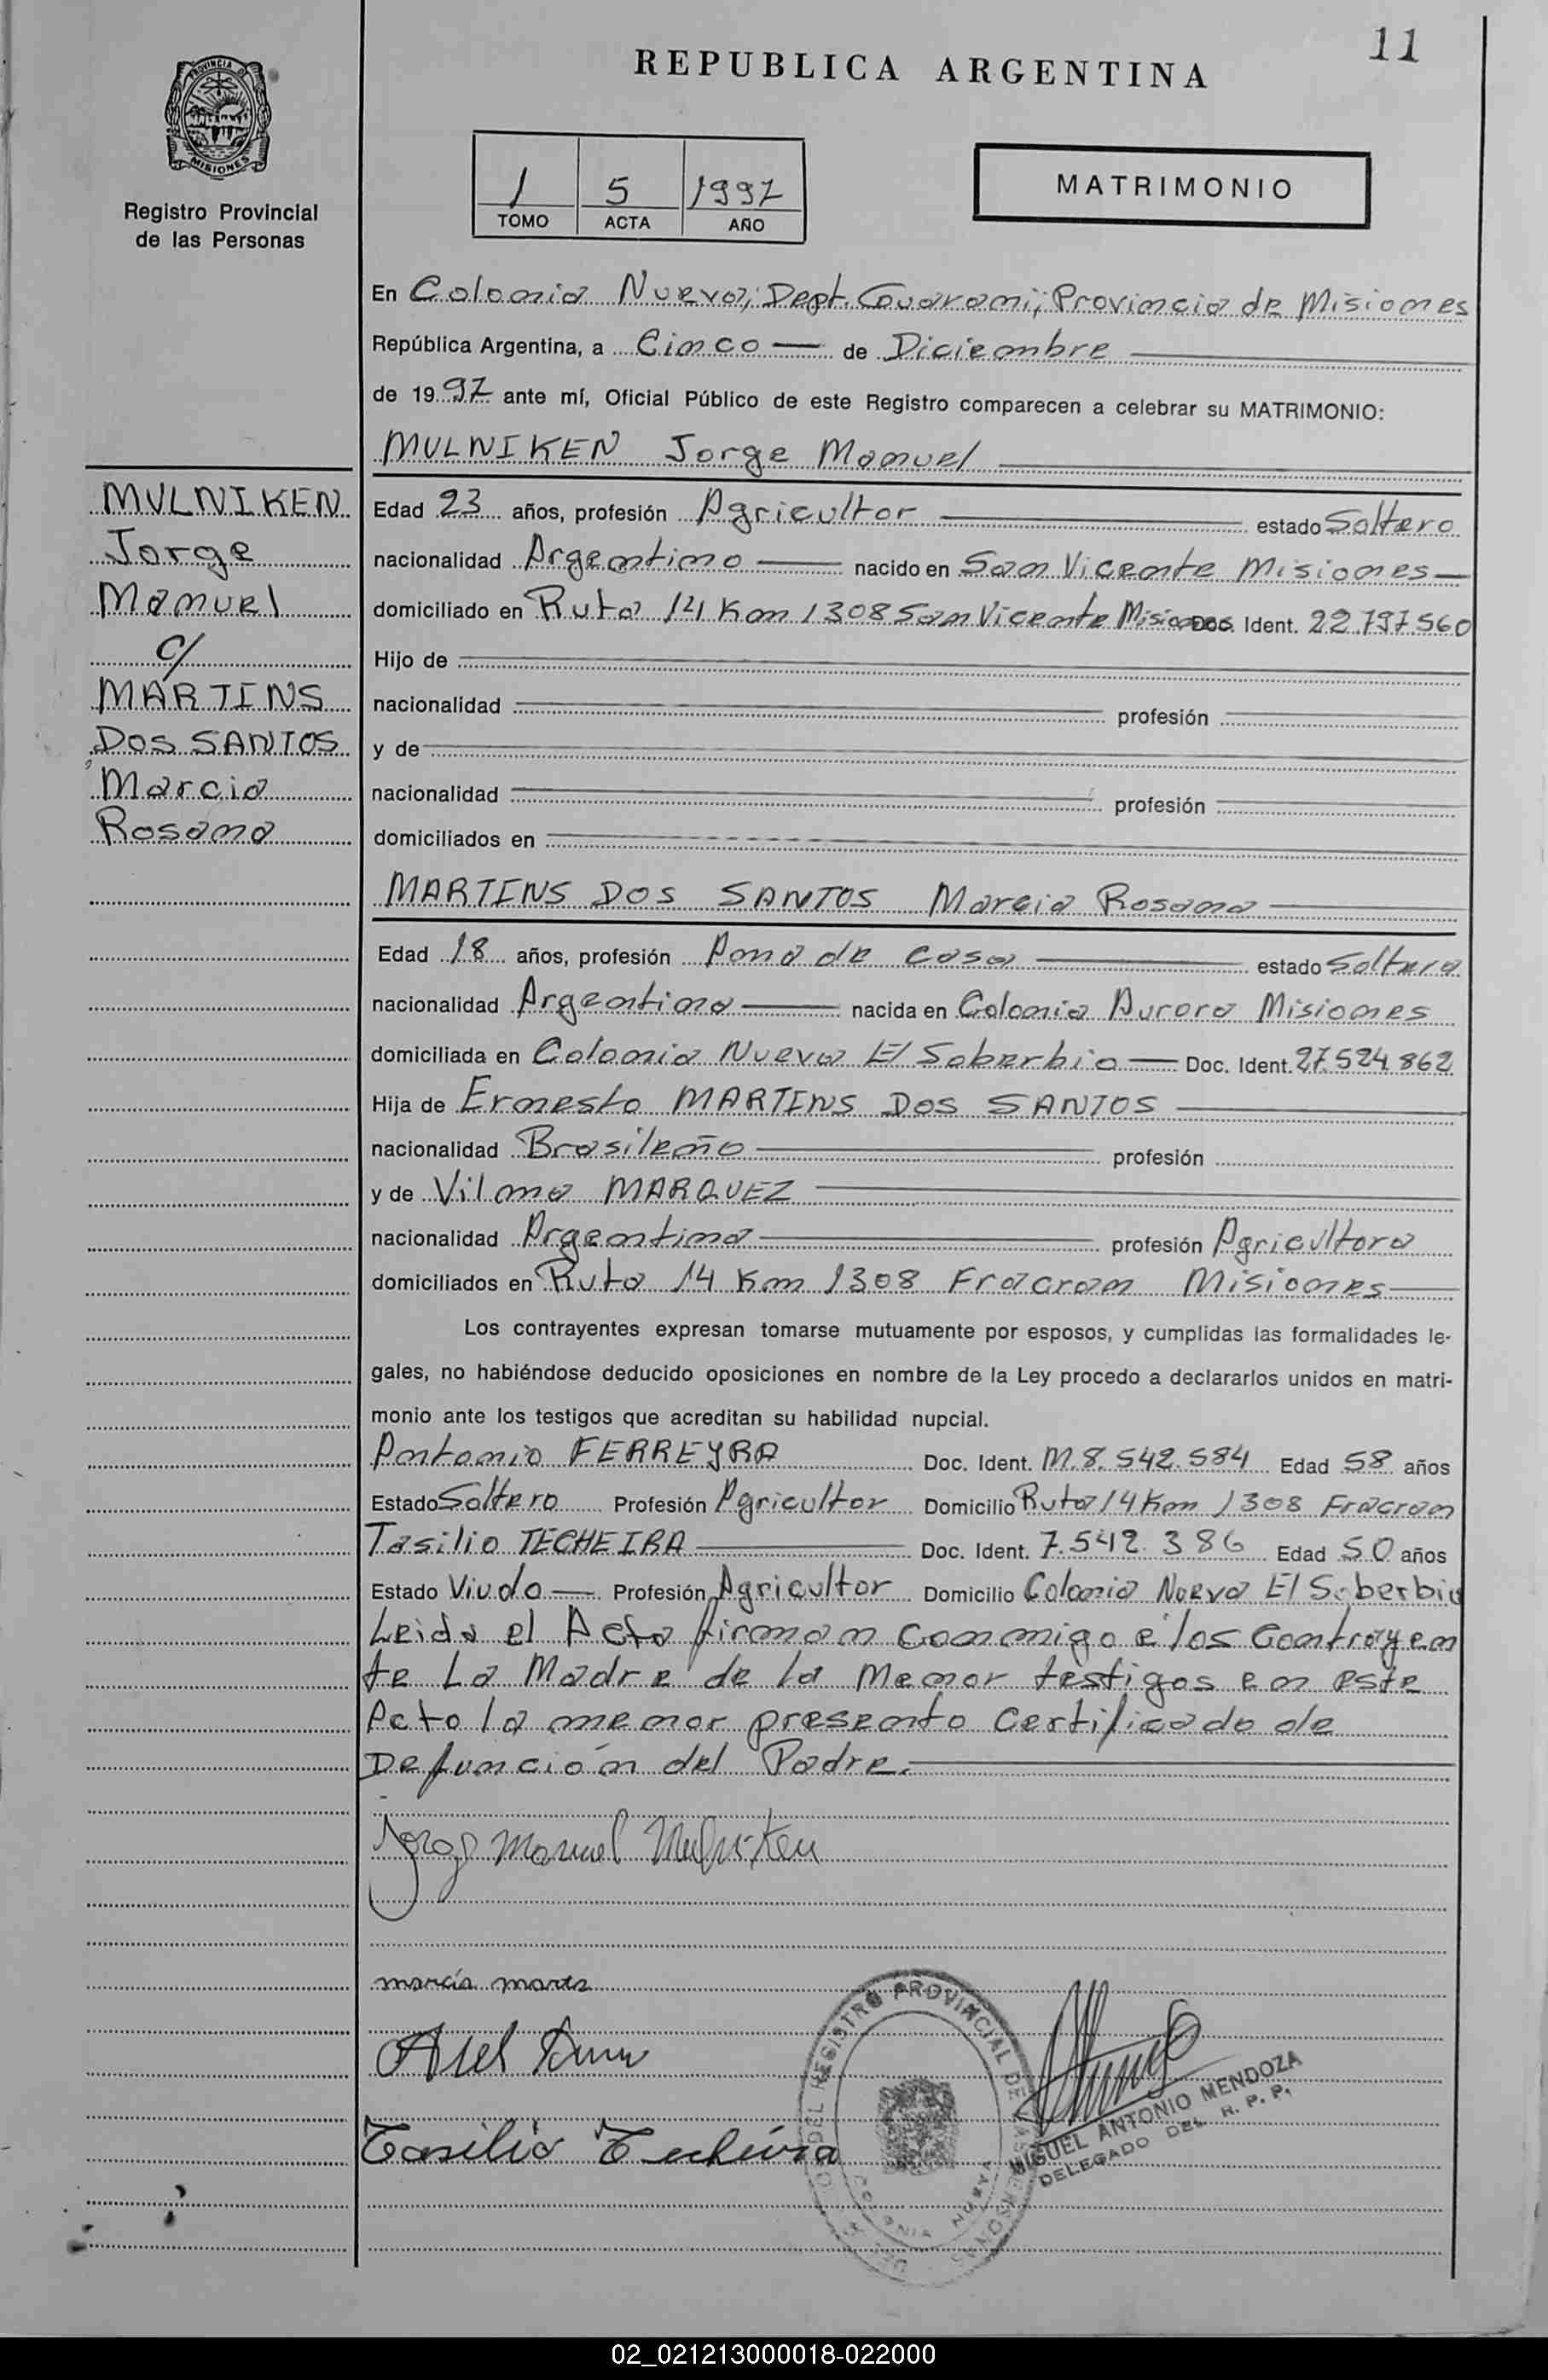 11
REPUBLICA ARGENTINA
PROVINCIA DE
MISIONES
Registro Provincial
de las Personas
1 5 1997
TOMO ACTA AÑO
MATRIMONIO
En Colonia Nueva, Dept. Guarani, Provincia de Misiones
República Argentina, a Cinco de Diciembre
de 1997 ante mí, Oficial Público de este Registro comparecen a celebrar su MATRIMONIO:
MULNIKEN Jorge Manuel
MULNIKEN
Jorge
Manuel
c/
MARTINS
DOS SANTOS
Marcia
Rosana
Edad 23 años, profesión Agricultor estado Soltero
nacionalidad Argentino nacido en San Vicente Misiones
domiciliado en Ruta 14 Km 1308 San Vicente Misiones Doc. Ident. 22.797.560
Hijo de
nacionalidad profesión
y de
nacionalidad profesión
domiciliados en
MARTINS DOS SANTOS Marcia Rosana
Edad 18 años, profesión Ama de casa estado Soltera
nacionalidad Argentina nacida en Colonia Aurora Misiones
domiciliada en Colonia Nueva El Soberbio Doc. Ident. 27.524.862
Hija de Ernesto MARTINS DOS SANTOS
nacionalidad Brasileño profesión
y de Vilma MARQUEZ
nacionalidad Argentina profesión Agricultora
domiciliados en Ruta 14 Km 1308 Fracran Misiones
Los contrayentes expresan tomarse mutuamente por esposos, y cumplidas las formalidades le-
gales, no habiéndose deducido oposiciones en nombre de la Ley procedo a declararlos unidos en matri-
monio ante los testigos que acreditan su habilidad nupcial.
Antonio FERREYRA Doc. Ident. M.8.542.584 Edad 58 años
Estado Soltero Profesión Agricultor Domicilio Ruta 14 Km 1308 Fracran
Tasilio TECHEIRA Doc. Ident. 7.542.386 Edad 50 años
Estado Viudo Profesión Agricultor Domicilio Colonia Nueva El Soberbio
Leida el Acta firman conmigo é los Contrayen
te La Madre de la Menor testigos en este
Acto la menor presento Certificado de
Defunción del Padre.
Jorge Manuel Mulniken
Tasilio Techeira
REGISTRO PROVINCIAL DE LAS PERSONAS
COLONIA NUEVA
MIGUEL ANTONIO MENDOZA
DELEGADO DEL R. P. P.
02_021213000018-022000